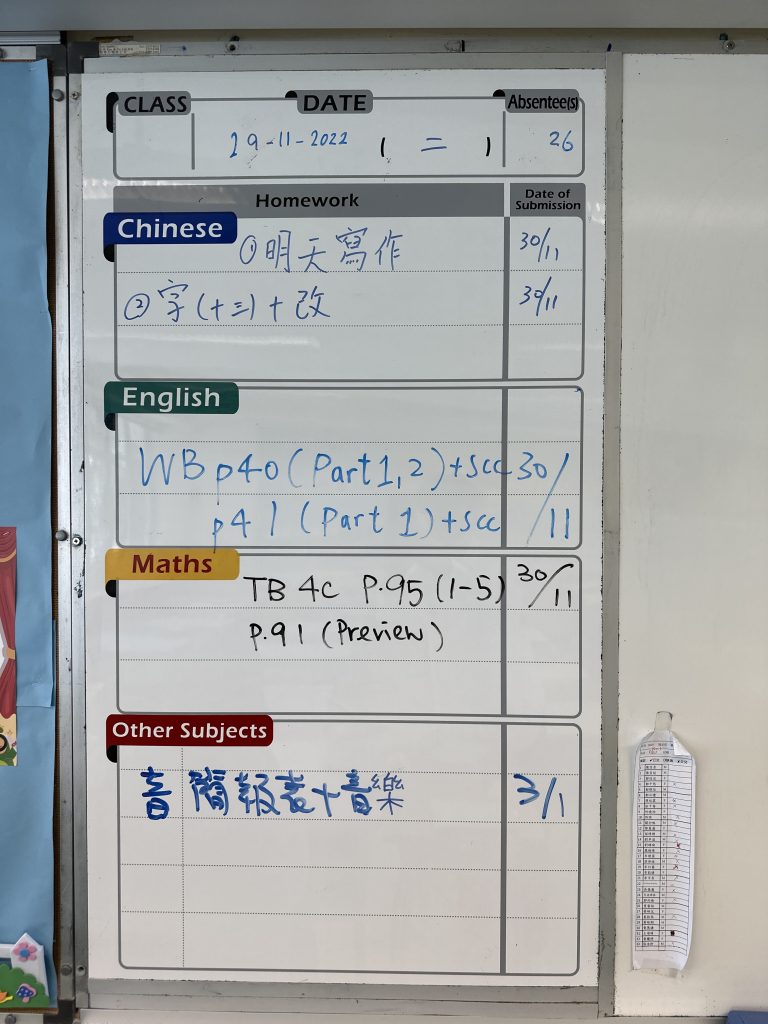 CLASS DATE Absentee(s)
29-11-2022 1 = 1 26
Homework Date of Submission
Chinese
①明天寫作 30/11
②字(十三)+改 30/11
English
WB p40 (Part 1, 2)+scc 30/11
p41 (Part 1)+scc
Maths
TB 4C P.95 (1-5) 30/11
P.91 (Preview)
Other Subjects
音 簡報表+音樂 3/1